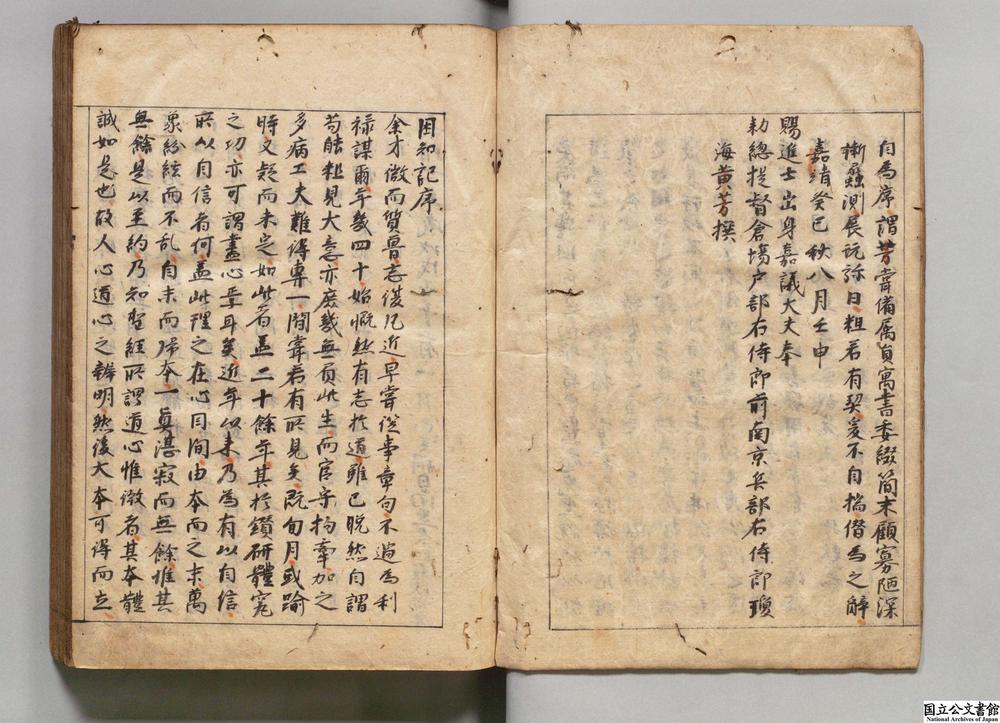 自為序謂芳嘗備属負寓書委綴簡末顧寡陋深
慚蠡測展玩弥日粗若有契爰不自揣僣為之辞
嘉靖癸巳秋八月壬申
賜進士出身嘉議大夫奉
勅總提督倉塲户部右侍郎前南京兵部右侍郎瓊
海黄芳撰
困知記序
余才微而質魯志復凡近早嘗從事章句不過為利
禄謀爾年幾四十始慨然有志於道雖已晩然自謂
苟能粗見大意亦庶幾無負此生而官守拘牽加之
多病工夫難得専一間嘗若有所見矣既旬月或踰
時又疑而未定如此者盖二十餘年其於鑽研體究
之功亦可謂盡心焉耳矣近年以来乃為有以自信
所以自信者何盖此理之在心目間由本而之末萬
象紛紜而不乱自末而歸本一真湛寂而無餘惟其
無餘是以至約乃知聖經所謂道心惟微者其本體
誠如是也故人心道心之辨明然後大本可得而立
国立公文書館
National Archives of Japan